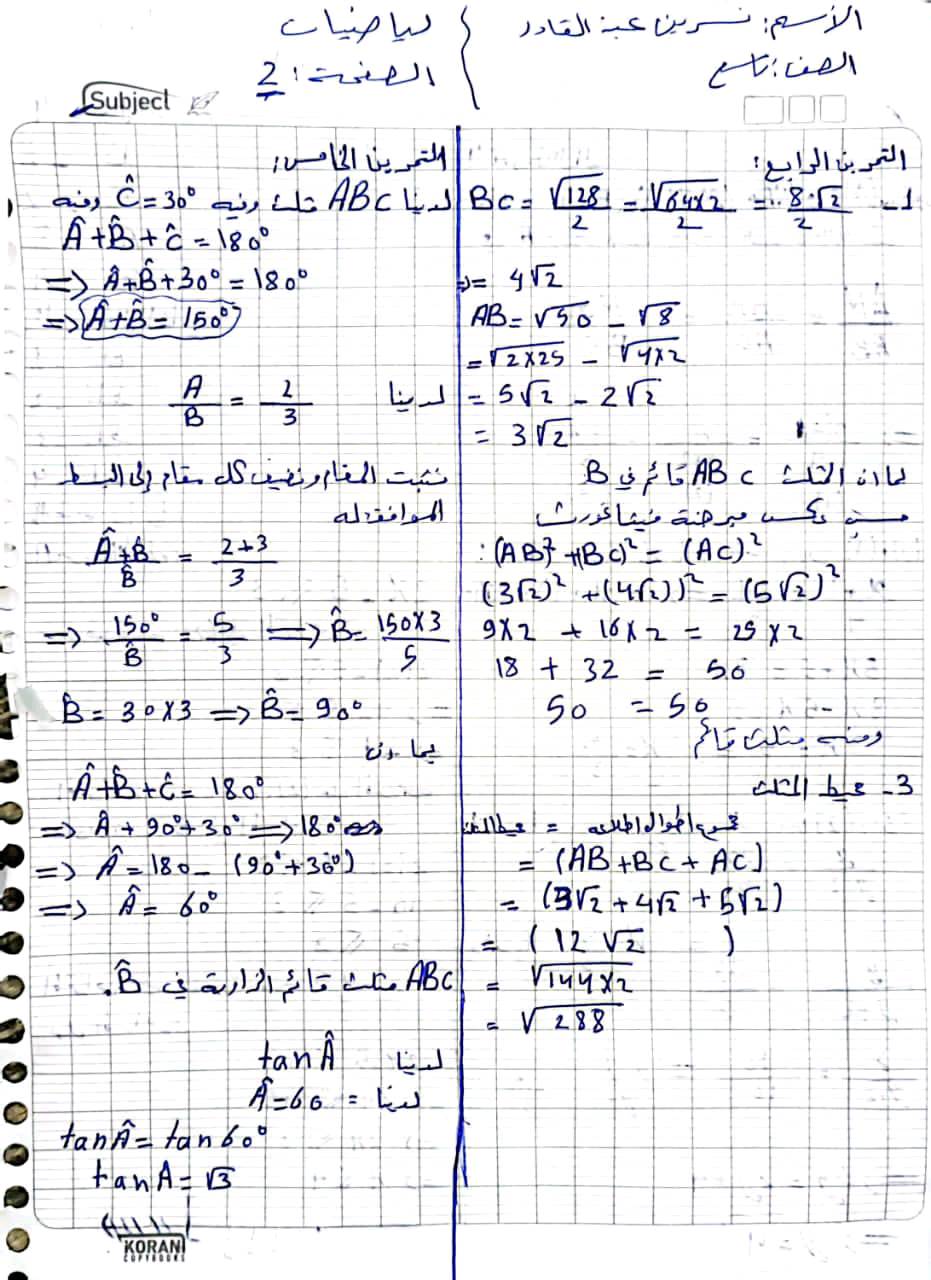 الأسم: نسرين عبد القادر
رياضيات
الصف: تاسع
الصفحة: 2
Subject
التمرين الرابع:
1- BC = √128/2 = √64×2/2 = 8√2/2
=> = 4√2
AB = √50 - √8
= √2×25 - √4×2
= 5√2 - 2√2
= 3√2
بما ان المثلث ABC قائم في B
حسب عكس مبرهنة فيثاغورث
: (AB)² + (BC)² = (AC)²
(3√2)² + (4√2))² = (5√2)²
9×2 + 16×2 = 25×2
18 + 32 = 50
50 = 50
ومنه مثلث قائم
3- محيط المثلث
محيط المثلث = مجموع اطوال اضلاعه
= (AB + BC + AC)
= (3√2 + 4√2 + 5√2)
= (12√2 )
= √144×2
= √288
التمرين الخامس:
لدينا ABC مثلث وفيه Ĉ = 30° ومنه
Â + B̂ + Ĉ = 180°
=> Â + B̂ + 30° = 180°
=> Â + B̂ = 150°
لدينا A/B = 2/3
نثبت المقام ونضيف كل مقام إلى البسط
الموافق له
Â + B̂/B̂ = 2+3/3
=> 150°/B̂ = 5/3 => B̂ = 150×3/5
B̂ = 30×3 => B̂ = 90°
بما ان
Â + B̂ + Ĉ = 180°
=> Â + 90° + 30° => 180°
=> Â = 180 - (90° + 30°)
=> Â = 60°
ABC مثلث قائم الزاوية في B̂.
لدينا tan Â
لدينا = Â = 60
tan Â = tan 60°
tan A = √3
KORANI
COPYBOOKS